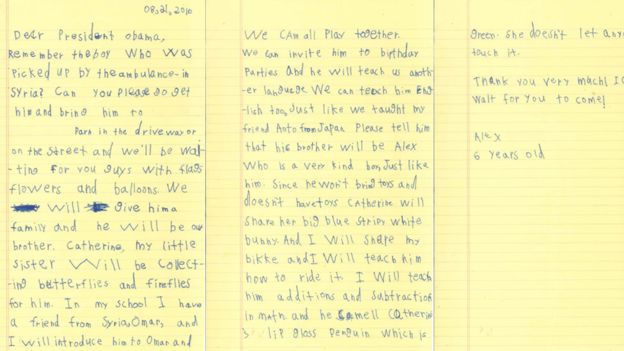 08,21,2016
Dear President obama,
Remember the boy who was
picked up by the ambulance in
Syria? Can you please go get
him and bring him to
Park in the driveway or
on the street and we'll be wai-
ting for you guys with flags
flowers and balloons. We
will give him a
family and he will be our
brother. Catherine, my little
sister will be collect-
ing butterflies and fireflies
for him. In my school I have
a friend from Syria, Omar, and
I will introduce him to Omar and
We can all play together.
We can invite him to birthday
parties and he will teach us anoth-
er language. We can teach him Eng-
lish too, Just like we taught my
friend Aoto from Japan Please tell him
that his brother will be Alex
who is a very kind boy, Just like
him. Since he won't bring toys and
doesn't have toys Catherine will
share her big blue stripy white
bunny. And I will share my
bikke and I will teach him
how to ride it. I will teach
him additions and subtraction
in math and he smell Catherine
lip gloss penguin which is
green. she doesn't let
touch it.
Thank you very much!
wait for you to come!
Alex
6 years old